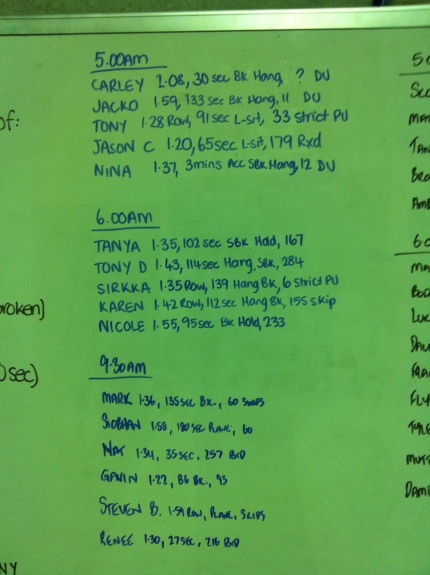 of:
roken)
0sec)
NY
5.00AM
CARLEY 2.08, 30 sec Bk Hang ? DU
JACKO 1.59, 133 sec Bk Hang, 11 DU
TONY 1.28 Row, 91 sec L-sit, 33 strict PU
JASON C 1.20, 65sec L-sit, 179 Rxd
NINA 1.37, 3mins Acc SBk Hang, 12 DU
6.00AM
TANYA 1.35, 102 sec SBk Hold, 167
TONY D 1.43, 114 sec Hang, SBk, 284
SIRKKA 1.35 Row, 139 Hang Bk, 6 Strict PU
KAREN 1.42 Row, 112 sec Hang Bk, 155 skip
NICOLE 1.55, 95 sec Bk Hold, 233
9.30AM
MARK 1.36, 135 sec Bk., 60
SIOBHAN 1.58, 180 sec PLANK, 60
NAT 1.34, 35 SEC, 257 RXD
GAVIN 1.22, 86 Bk., 93
STEVEN B. 1.59 ROW, PLANK, SKIPS
RENEE 1.30, 27 SEC, 216 RXD
5
TAN
Bro
Amb
6
Boo
Luc
Shu
FLY
TYLE
DAMI